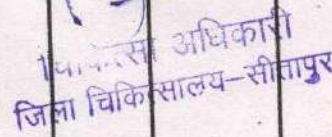 चिकित्सा अधिकारी
जिला चिकित्सालय-सीतापुर